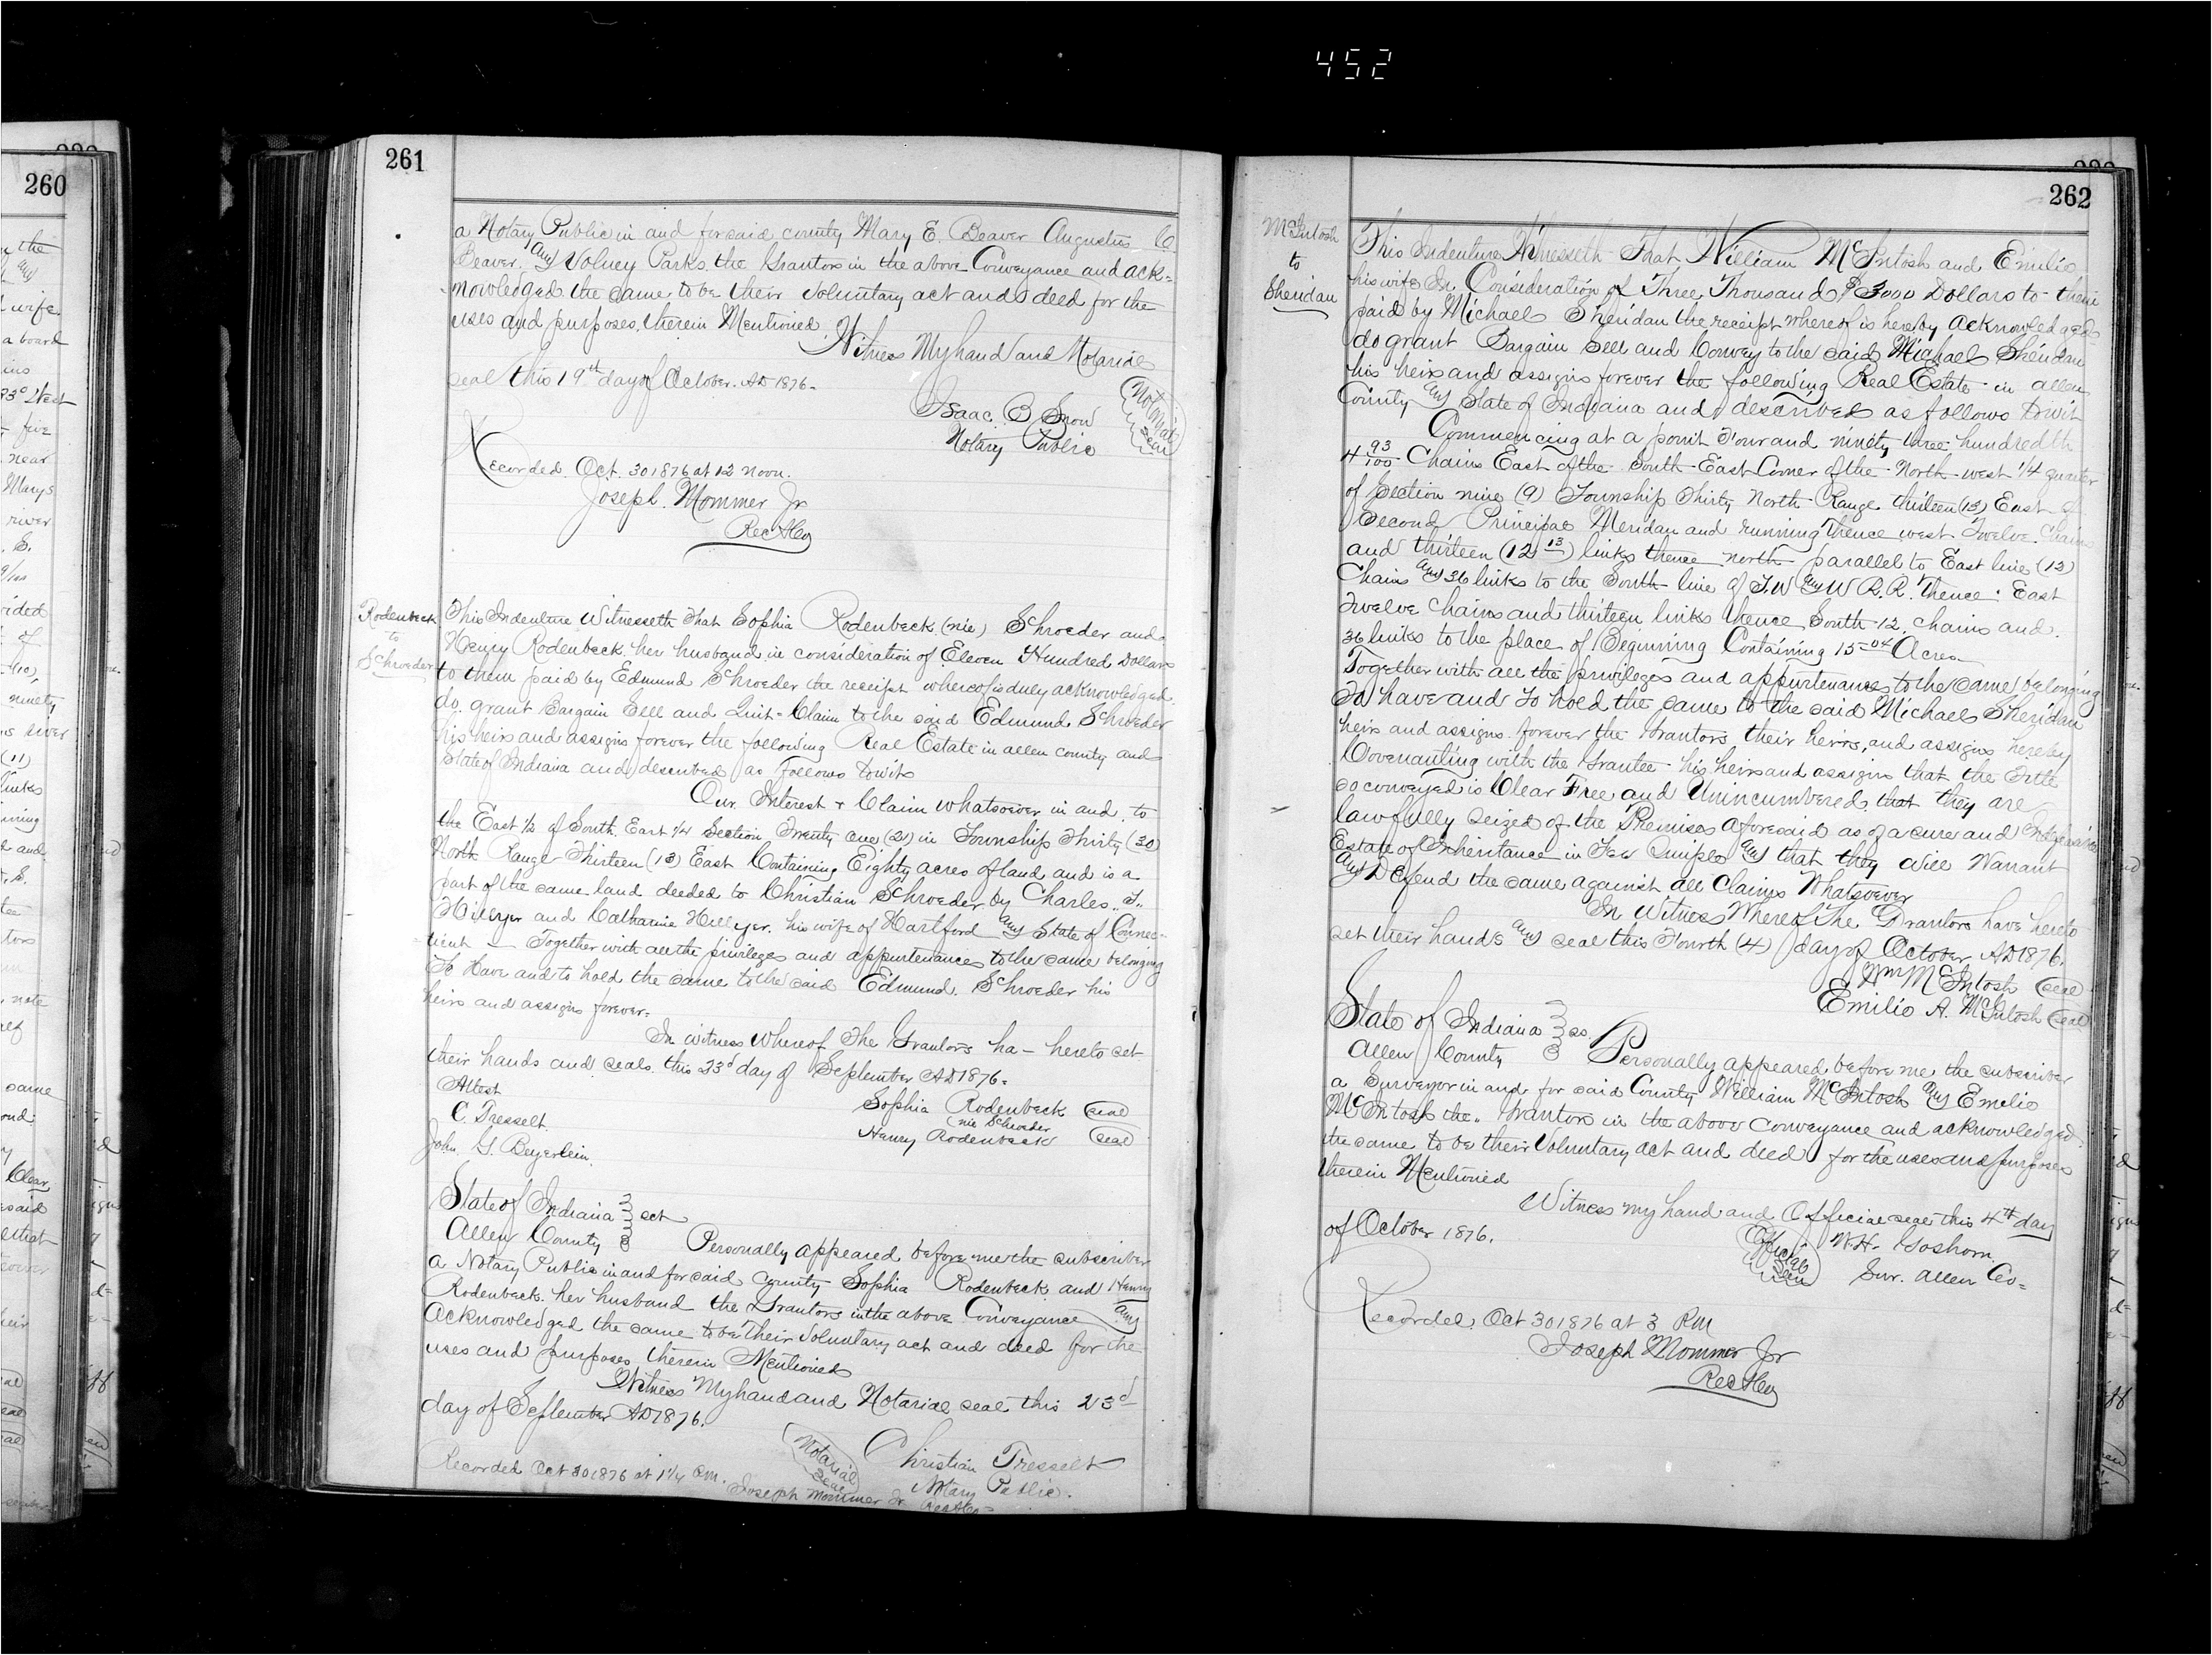 452
260
261
a Notary Public in and for said county Mary E. Beaver Augustus C.
Beaver. and Volney Parks. the Grantors in the above Conveyance and ack=
nowledged the same to be their voluntary act and deed for the
uses and purposes therein Mentioned.
Witness My hand and Notarial
seal this 19th day of October. AD 1876.
Isaac. B Snow
Notary Public
Notarial
Seal
Recorded Oct. 30 1876 at 12 noon.
Joseph. Mommer Jr
Rec
Rodenbeck
to
Schroeder
This Indenture Witnesseth That Sophia Rodenbeck (nie) Schroeder and
Henry Rodenbeck her husband in consideration of Eleven Hundred Dollars
to them paid by Edmund Schroeder the receipt whereof is duly acknowledged
do. grant Bargain Sell and Quit=Claim to the said Edmund Schroeder
his heirs and assigns forever the following Real Estate in allen county and
State of Indiana and described as follows towit
Our Interest & Claim whatsoever in and to
the East 1/2 of South East 1/4 Section Twenty one (21) in Township Thirty (30)
North Range Thirteen (13) East Containing Eighty acres of land and is a
part of the same land deeded to Christian Schroeder by Charles
Hillyer and Catharine Hillyer. his wife of Hartford and State of Connec-
ticut — Together with all the privileges and appurtenances to the same belonging
To Have and to hold the same to the said Edmund. Schroeder his
heirs and assigns forever=
In witness Whereof The Grantors ha — hereto set
their hands and seals this 23d day of September AD 1876.
Attest
C. Tresselt.
John. G. Beyerlein.
Sophia Rodenbeck (seal)
nie Schroeder
Henry Rodenbeck (seal)
State of Indiana } sct
Allen County }
Personally appeared before me the subscriber
a Notary Public in and for said county Sophia Rodenbeck and Henry
Rodenbeck. her husband the Grantors in the above Conveyance and
Acknowledged the same to be Their Voluntary act and deed for the
uses and purposes therein Mentioned
Witness My hand and Notarial seal this 23d
day of September AD 1876.
Notarial
Seal
Christian Tresselt
Notary Public.
Recorded Oct 30 1876 at 1 1/4 P.M.
Joseph Mommer Jr
262
McIntosh
to
Sheridan
This Indenture Witnesseth That William McIntosh and Emilie
his wife In Consideration of Three Thousand $3000 Dollars to them
paid by Michael Sheridan the receipt whereof is hereby acknowledged
do grant Bargain Sell and Convey to the said Michael Sheridan
his heirs and assigns forever the following Real Estate in allen
County and State of Indiana and described as follows towit
Commencing at a point Four and ninety three hundredth
4 93/100 Chains East of the South East Corner of the North west 1/4 quarter
of Section nine (9) Township Thirty North Range thirteen (13) East of
Second Principal Meridan and running Thence west Twelve Chains
and thirteen (12 13) links thence north parallel to East line (12)
Chains and 36 links to the South line of T.W and W R.R. Thence : East
Twelve Chains and thirteen links thence South 12. chains and
36 links to the place of Beginning Containing 15 04 Acres
Together with all the privileges and appurtenances to the same belonging
To have and To hold the same to the said Michael Sheridan
heirs and assigns forever the Grantors their heirs and assigns hereby
Covenanting with the Grantee his heirs and assigns that the Title
so conveyed is Clear Free and Unincumbered that they are
lawfully seized of the Premises aforesaid as of a sure and Indefeasible
Estate of Inheritance in Fee Simple and that they will Warrant
and Defend the same against all Claims Whatsoever
In Witness Whereof The Grantors have hereto
set their hands and seal this Fourth (4) day of October AD 1876.
Wm McIntosh (seal)
Emilie A. McIntosh (seal)
State of Indiana } ss.
Allen County }
Personally appeared before me the subscriber
a Surveyor in and for said County William McIntosh and Emilie
McIntosh the Grantors in the above Conveyance and acknowledged
the same to be their Voluntary act and deed for the uses and purposes
therein Mentioned
Witness my hand and Official seal this 4th day
of October 1876.
Official
Seal
W.H. Goshorn
Sur. Allen Co=
Recorded Oct 30 1876 at 3 PM
Joseph Mommer Jr
Rec